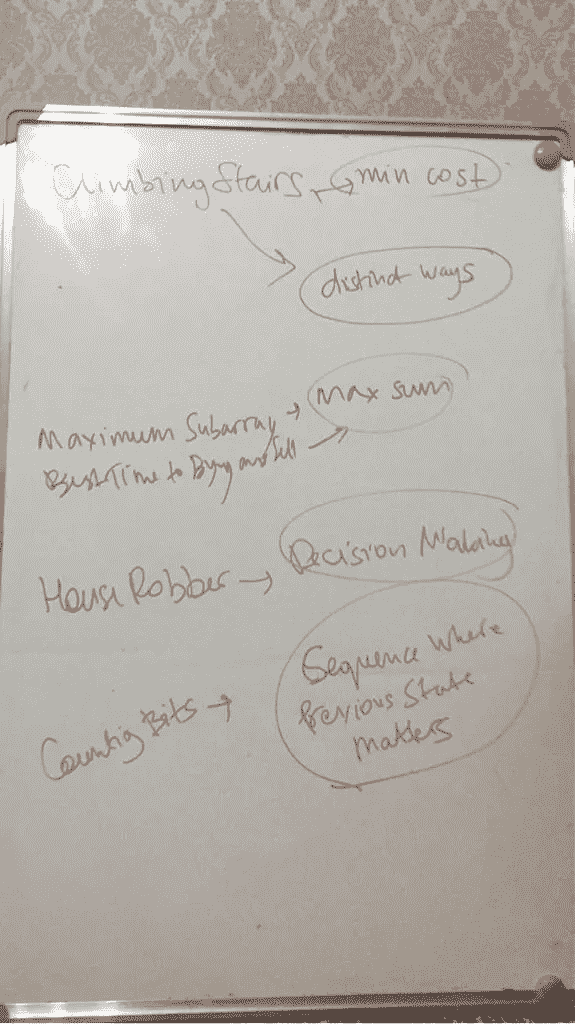 Climbing Stairs → min cost
distinct ways
Maximum Subarray → Max sum
Best Time to Buy and Sell →
House Robber → Decision Making
Counting Bits → Sequence Where
Previous State
Matters